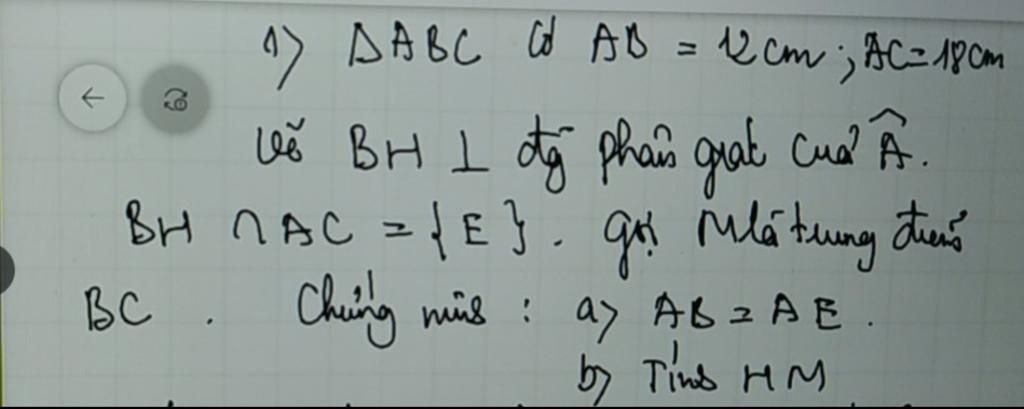 1) ΔABC có AB = 12cm; AC = 18cm
Vẽ BH ⊥ đg phân giác của Â.
BH ∩ AC = {E}. Gọi M là trung điểm
BC. Chứng minh: a) AB = AE.
b) Tính HM